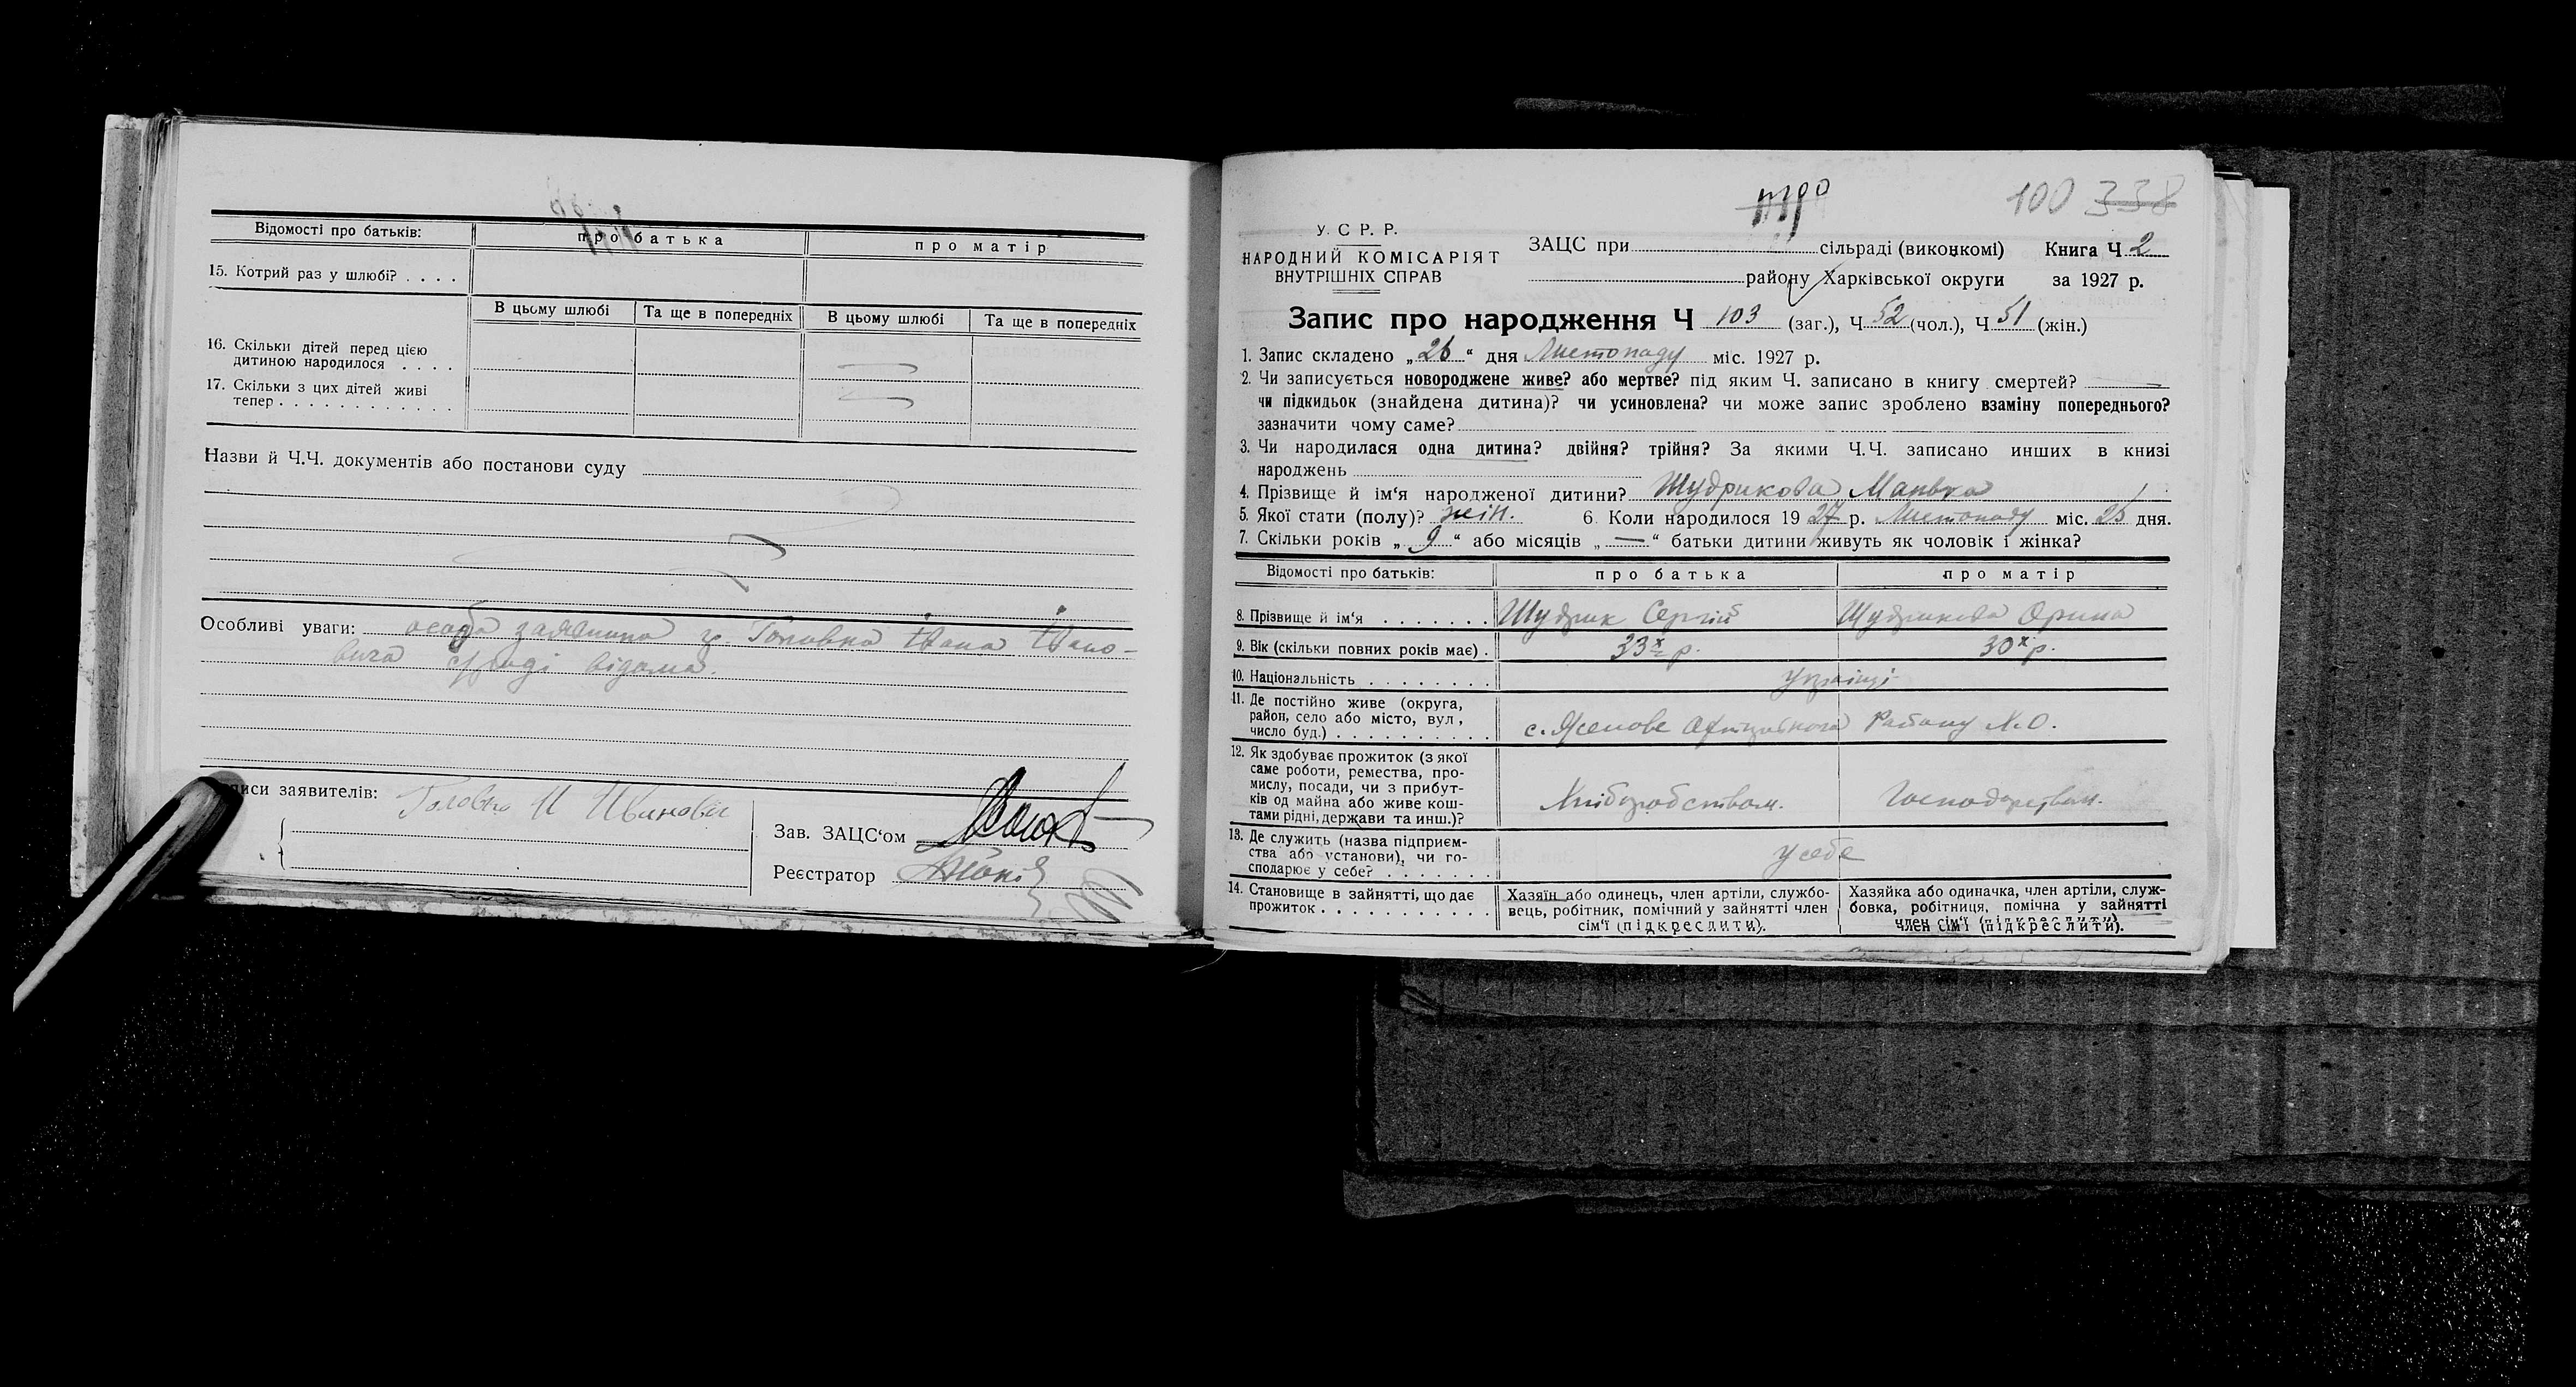 Відомості про батьків: про батька про матір
15. Котрий раз у шлюбі? . . . .
В цьому шлюбі Та ще в попередніх В цьому шлюбі Та ще в попередніх
16. Скільки дітей перед цією
дитиною народилося . . . .
17. Скільки з цих дітей живі
тепер . . . . . . . . . . . .
Назви й Ч.Ч. документів або постанови суду
Особливі уваги: особа заявника гр. Головка Івана Івано-
вича с/раді відома.
писи заявителів: Головко И Иванович
Зав. ЗАЦС'ом
Реєстратор
100 338
У. С Р. Р.
НАРОДНИЙ КОМІСАРІЯТ
ВНУТРІШНІХ СПРАВ
ЗАЦС при сільраді (виконкомі) Книга Ч 2
району Харківської округи за 1927 р.
Запис про народження Ч 103 (заг.), Ч 52 (чол.), Ч 51 (жін.)
1. Запис складено „26“ дня Листопаду міс. 1927 р.
2. Чи записується новороджене живе? або мертве? під яким Ч. записано в книгу смертей? —
чи підкидьок (знайдена дитина)? чи усиновлена? чи може запис зроблено взаміну попереднього?
зазначити чому саме?
3. Чи народилася одна дитина? двійня? трійня? За якими Ч.Ч. записано инших в книзі
народжень
4. Прізвище й ім'я народженої дитини? Щудрикова
5. Якої стати (полу)? жін. 6. Коли народилося 1927 р. Листопаду міс. 25 дня.
7. Скільки років „9“ або місяців „—“ батьки дитини живуть як чоловік і жінка?
Відомості про батьків: про батька про матір
8. Прізвище й ім'я . . . . . . . Щудрик Сергій Щудрикова Орина
9. Вік (скільки повних років має) . 33х р. 30х р.
10. Національність . . . . . . . . українці
11. Де постійно живе (округа,
район, село або місто, вул,
число буд.) . . . . . . . . . . с. Ясенове Району Х.О.
12. Як здобуває прожиток (з якої
саме роботи, ремества, про-
мислу, посади, чи з прибут-
ків од майна або живе кош-
тами рідні, держави та инш.)? Хліборобством. Господарством.
13. Де служить (назва підприєм-
ства або установи), чи го-
сподарює у себе? . . . . . . . у себе
14. Становище в зайнятті, що дає
прожиток . . . . . . . . . . .
Хазяїн або одинець, член артіли, службо-
вець, робітник, помічний у зайнятті член
сім'ї (підкреслити).
Хазяйка або одиначка, член артіли, служ-
бовка, робітниця, помічна у зайнятті
член сім'ї (підкреслити).